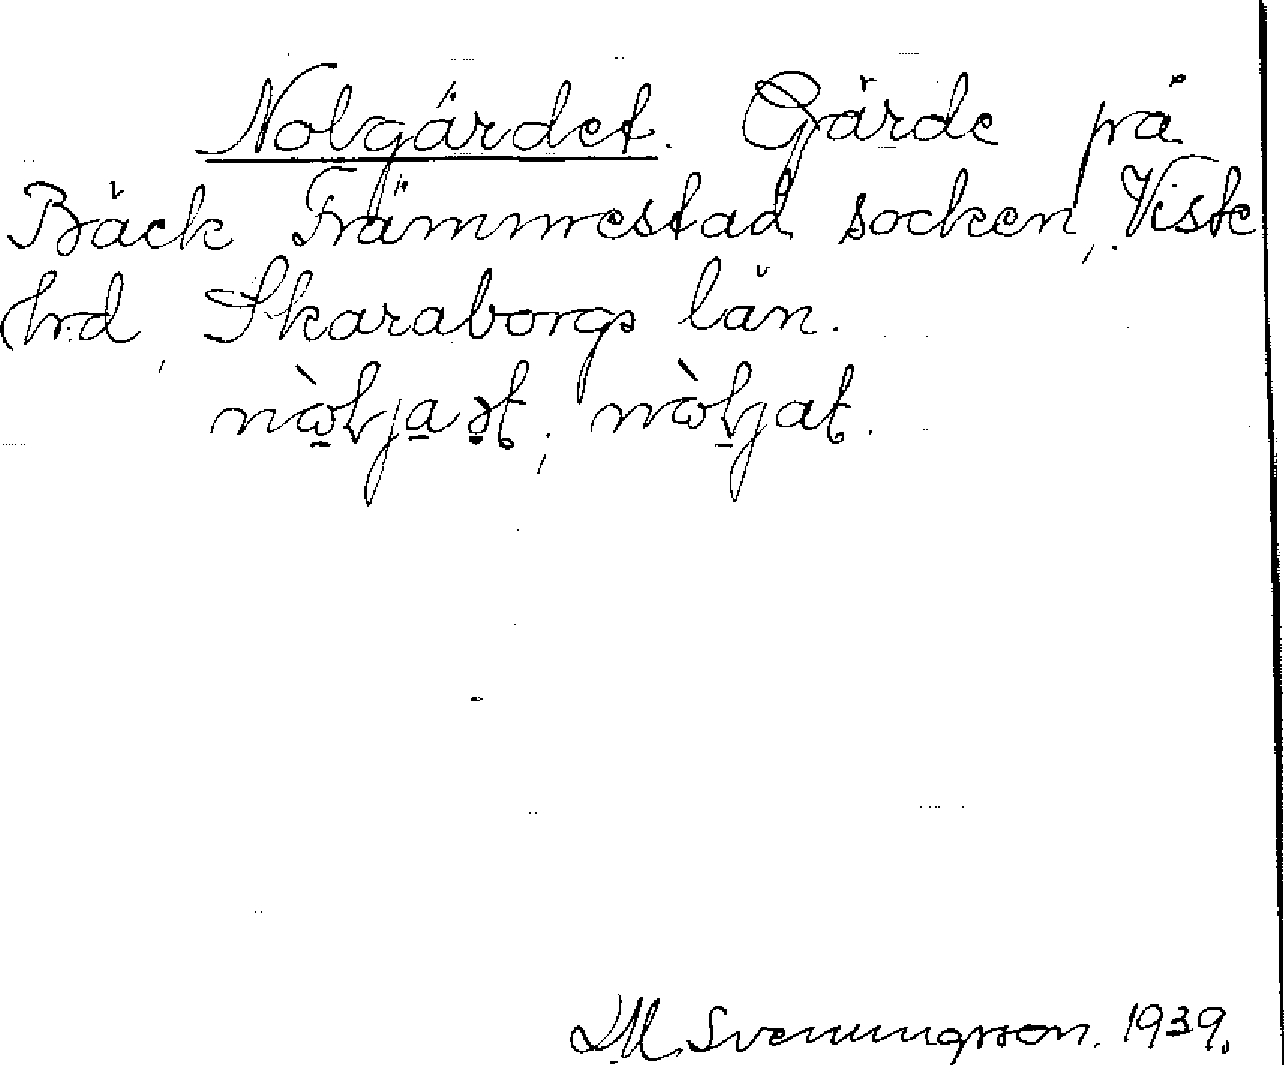 Nolgärdet. Gärde på
Bäck Främmestad socken, Viste
hrd, Skaraborgs län.
Svenungsson. 1939.